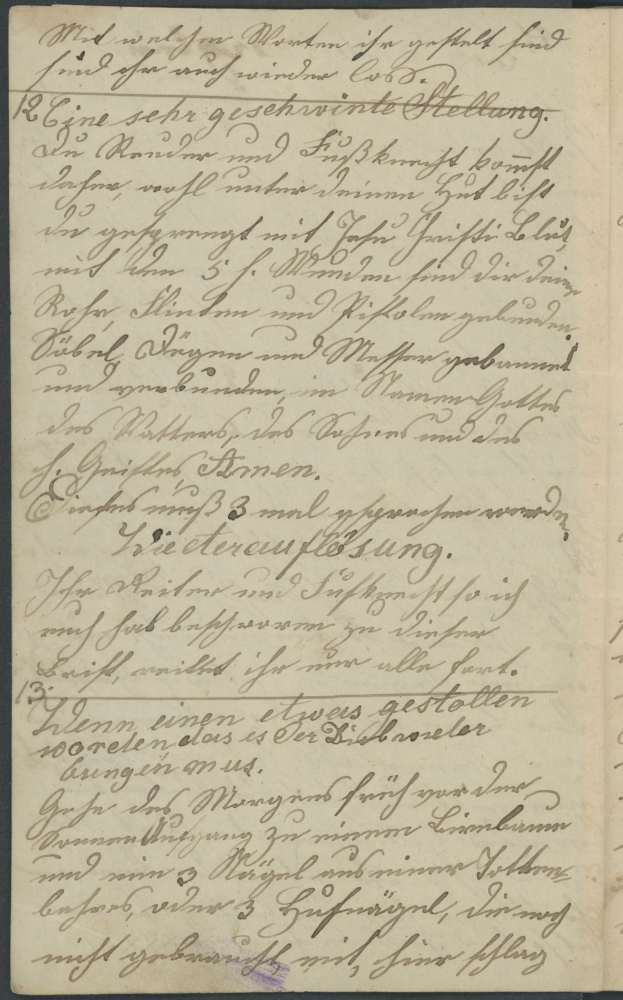 Mit welchen Worten ihr gestelt sind
sind ihr auch wieder loss.
12 Eine sehr geschwinte Stellung.
Du Reuder und Fußknecht kom̅st
daher, wohl unter deinen Hut bist
du gesprengt mit Jesu Christi Blut,
mit den 5 h. Wunden sind dir deine
Rohr, Flinten und Pistolen gebunden.
Säbel, Dägen und Messer gebannet
und verbunden, im Namen Gottes
des Vatters, des Sohnes und des
h. Geistes, Amen.
Dieses muß 3 mal gsprochen werden.
Wiederauflösung.
Ihr Reiter und Fußknecht so ich
euch hab beschworen zu dieser
Frist, reitet ihr nur alle fort.
13. Wenn einen etwas gestollen
worden das es der Dieb wieder
bringen mus.
Gehe des Morgens früh vor der
Sonnen Aufgang zu einem Birnbaum
und nim 3 Nägel aus einer Totten-
bahre, oder 3 Hufnägel, die noch
nicht gebraucht, mit, hier schlag